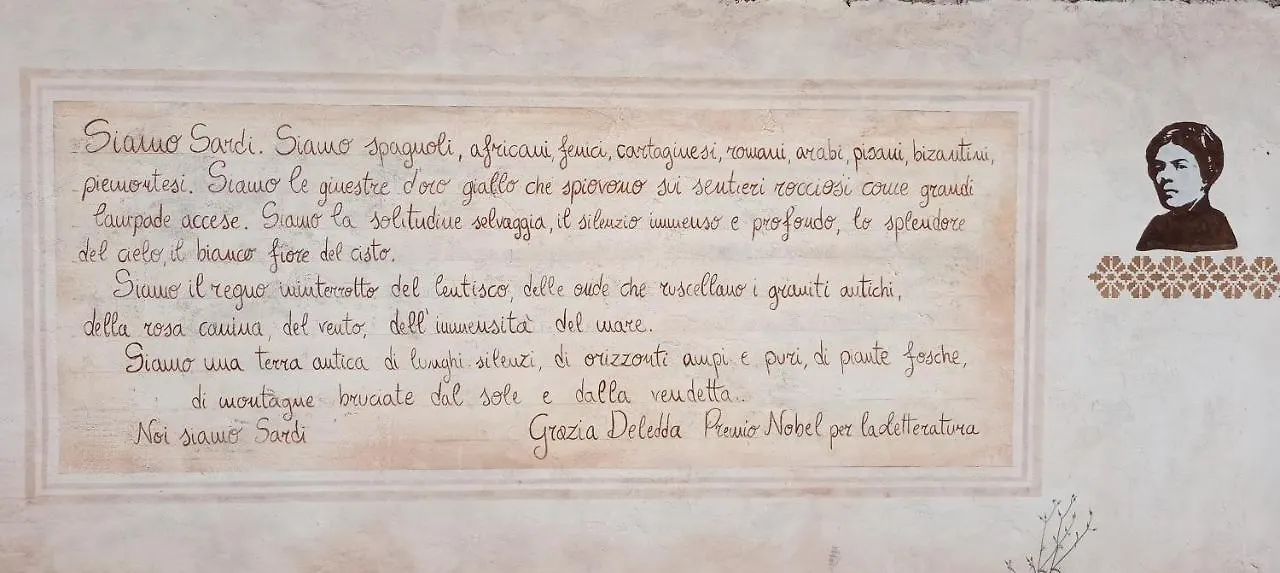 Siamo Sardi. Siamo spagnoli, africani, fenici, cartaginesi, romani, arabi, pisani, bizantini,
piemontesi. Siamo le ginestre d'oro giallo che spiovono sui sentieri rocciosi come grandi
lampade accese. Siamo la solitudine selvaggia, il silenzio immenso e profondo, lo splendore
del cielo, il bianco fiore del cisto.
Siamo il regno ininterrotto del lentisco, delle onde che ruscellano i graniti antichi,
della rosa canina, del vento, dell'immensità del mare.
Siamo una terra antica di lunghi silenzi, di orizzonti ampi e puri, di piante fosche,
di montagne bruciate dal sole e dalla vendetta..
Noi siamo Sardi
Grazia Deledda Premio Nobel per la letteratura